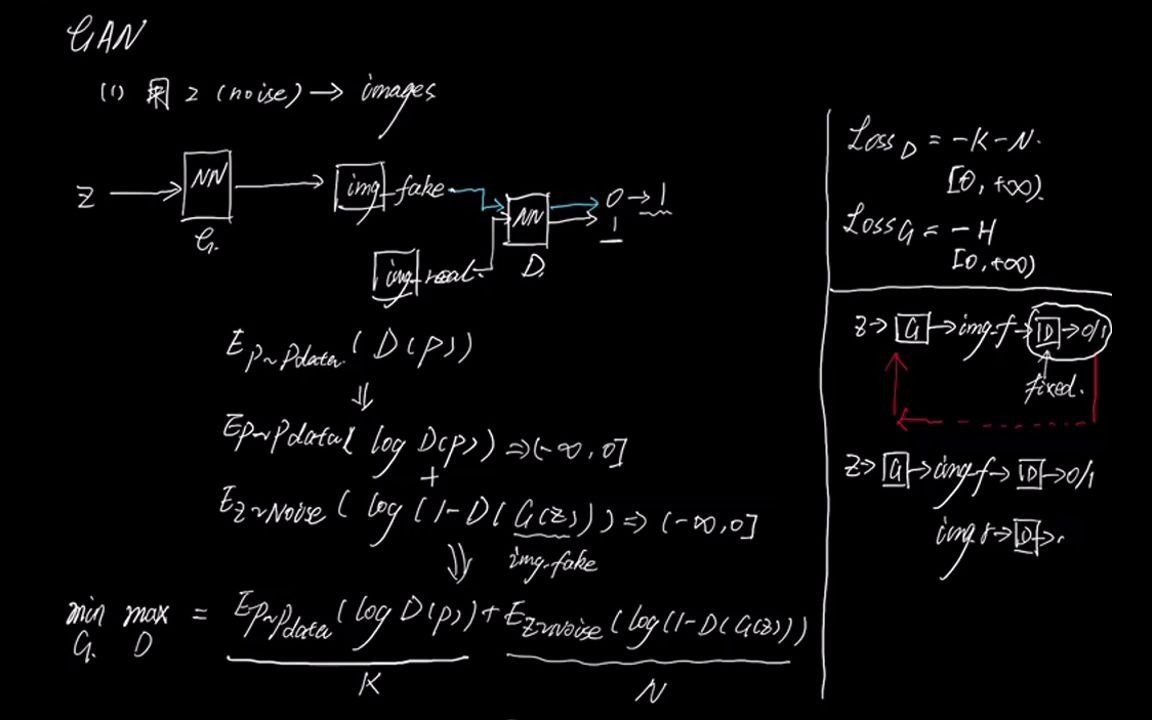 GAN
(1) 用 z (noise) → images
z → NN → img_fake → NN → 0 → 1
G.
1
img_real.
D.
E p~Pdata. ( D(p) )
⇓
E p~Pdata ( log D(p) ) ⇒ (-∞, 0]
+
E z~Noise ( log ( 1 - D( G(z) ) ) ⇒ (-∞, 0]
⇓ img_fake
min max = E p~Pdata ( log D(p) ) + E z~noise ( log ( 1 - D( G(z) ) )
G. D
K N
Loss D = -K-N.
[0, +∞).
Loss G = -H
[0, +∞)
z → G → img_f → D → 0/1
fixed.
z → G → img_f → D → 0/1
img_r → D →